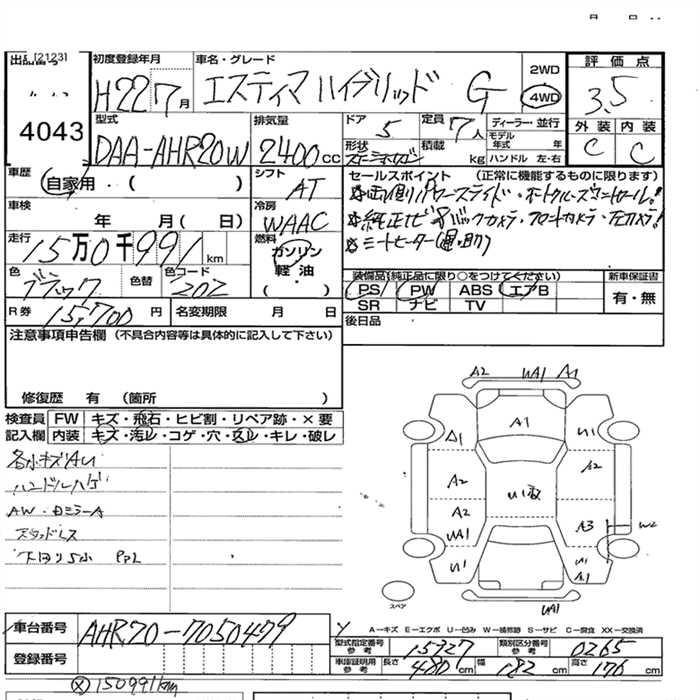 出品 [2123]
4043
初度登録年月
H22 7月
車名・グレード
エスティマ ハイブリッド G
2WD
4WD
評価点
3.5
型式
DAA-AHR20W
排気量
2400cc
ドア 5
定員 7人
形状
積載 kg
ディーラー・並行
モデル年式 年
ハンドル 左・右
外装 内装
C C
車歴
自家用 ・ ( )
シフト AT
セールスポイント (正常に機能するものに限ります)
両側パワースライド・オートクルーズコントロール!
純正ナビ バックカメラ・フロントカメラ・左カメラ!
シートヒーター(運・助)
車検 年 月 ( 日)
冷房 WAAC
走行 15万0千991km
燃料
ガソリン
軽油
( )
色 ブラック
色替
色コード 202
装備品(純正品に限り○をつけてください)
PS PW ABS エアB
SR ナビ TV
新車保証書
有・無
R券 15,700円
名変期限 月 日
後日品
注意事項申告欄 (不具合内容等は具体的に記入して下さい)
修復歴 有 (箇所 )
検査員
記入欄
FW キズ・飛石・ヒビ割・リペア跡・×要
内装 キズ・汚レ・コゲ・穴・スレ・キレ・破レ
各小キズAU
ハンドルハゲ
AW・ロミラーA
スタッドレス
下回りS小 PPL
A2 UA1 A1
A1
Δ1
U1
A2
A2
U1 
A2
UA1
A3
W2
U1
U1
A1
UA1
スペア
A−キズ E−エクボ U−凹み W−補修跡 S−サビ C−腐食 XX−交換済
車台番号 AHR20-7050479
登録番号
型式指定番号 参考 15927
類別区分番号 参考 0265
車庫証明用 参考 長さ 480cm 幅 182cm 高さ 176cm
150991km